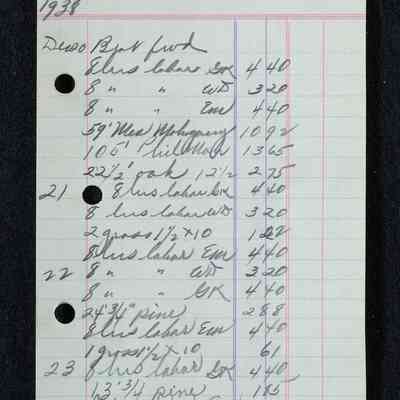 1938
Dec 20 Bot fwd
8 hrs labor GK 4 40
8 " " WD 3 20
8 " " Em 4 40
59' Mex Mahogany 10 92
105' Phil Mah 13 65
22 1/2' oak 12 1/2 2 75
21 8 hrs labor GK 4 40
8 hrs labor WD 3 20
2 gross 1 1/2 x 10 1 22
8 hrs labor Em 4 40
22 8 " " WD 3 20
8 " " GK 4 40
24' 3/4" pine 2 88
8 hrs labor Em 4 40
1 gross 1 1/2 x 10 61
23 8 hrs labor GK 4 40
3/4 pine 1 85